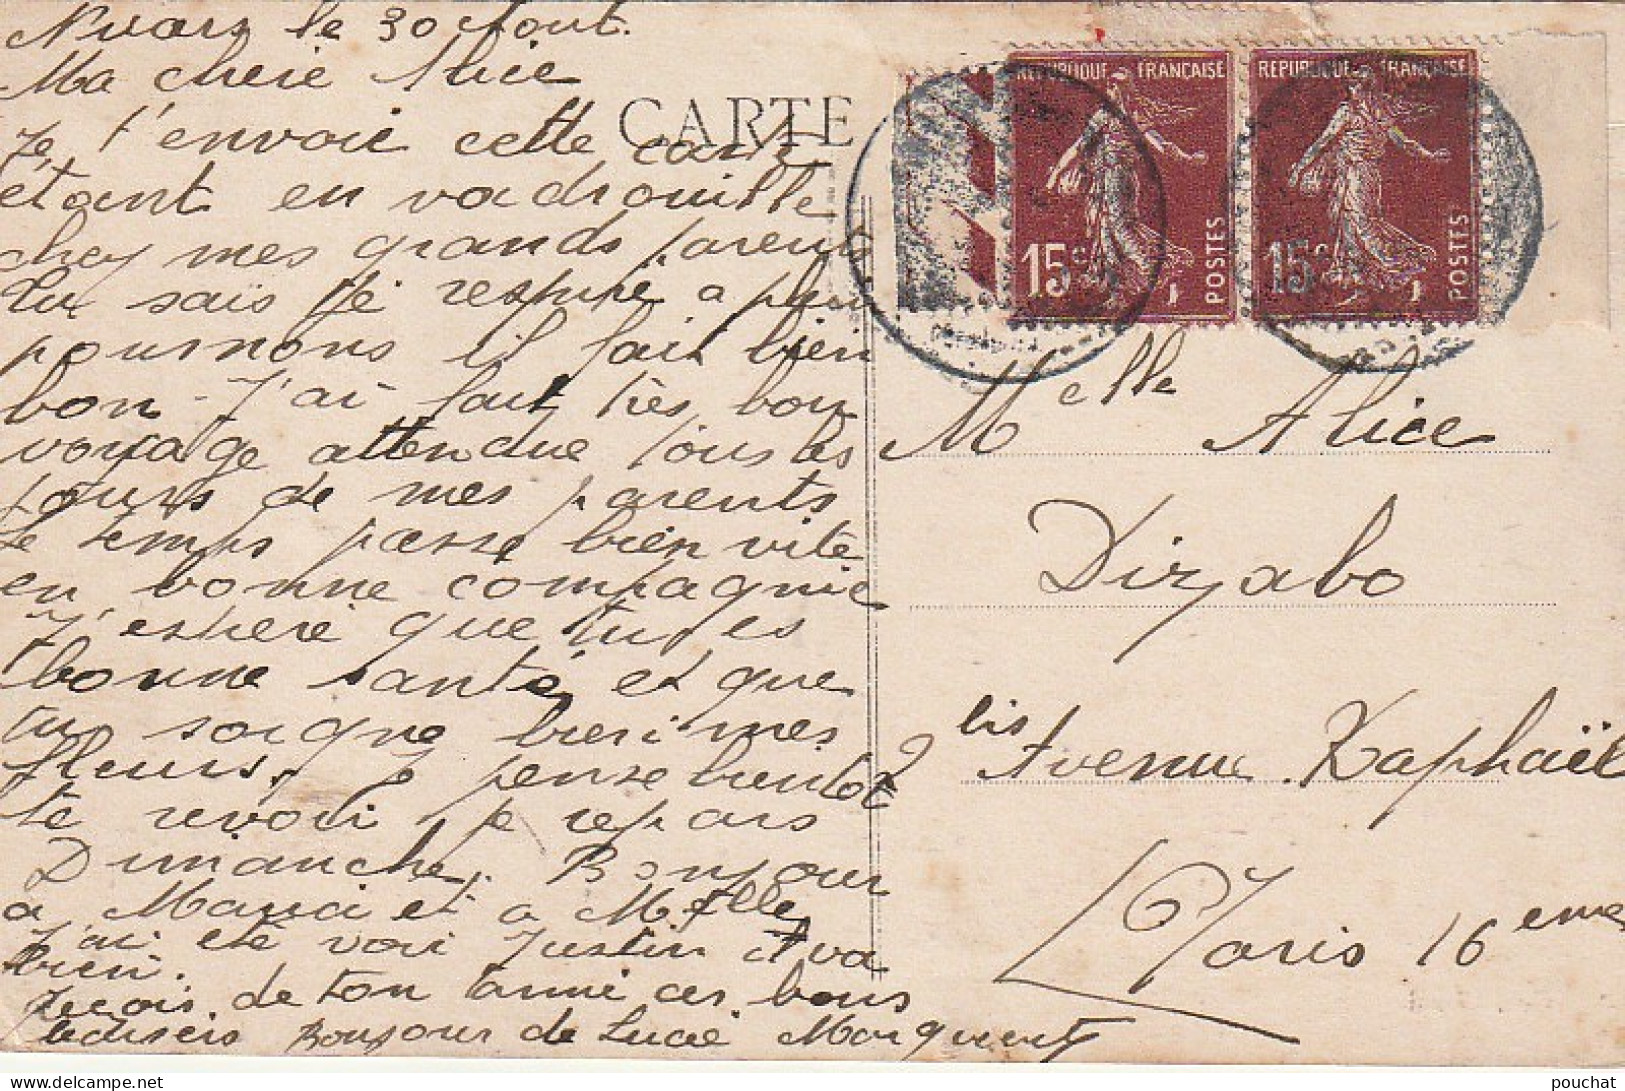 le 30 Aout.
Ma chere Alice
Je t'envoie cette carte
étant en vadrouille
chez mes grands parents
tu sais je respire a plein
poumons il fait bien
bon - J'ai fait très bon
voyage attendue tous les
jours de mes parents
Le temps passe bien vite
en bonne compagnie
J'espere que tu es
bonne santé et que
tu soigne bien mes
fleurs. Je pense bientot
te revoir je repars
Dimanche. Bonjour
a Maria et a Melle
J'ai été voir Justin il va
bien.
Reçois de ton amie ces bons
baisers Bonjour de Lucie Marquent
CARTE
REPUBLIQUE FRANÇAISE
15c
POSTES
REPUBLIQUE FRANÇAISE
15c
POSTES
Melle Alice
Dizabo
2 bis Avenue Raphaël
Paris 16eme
pouchat